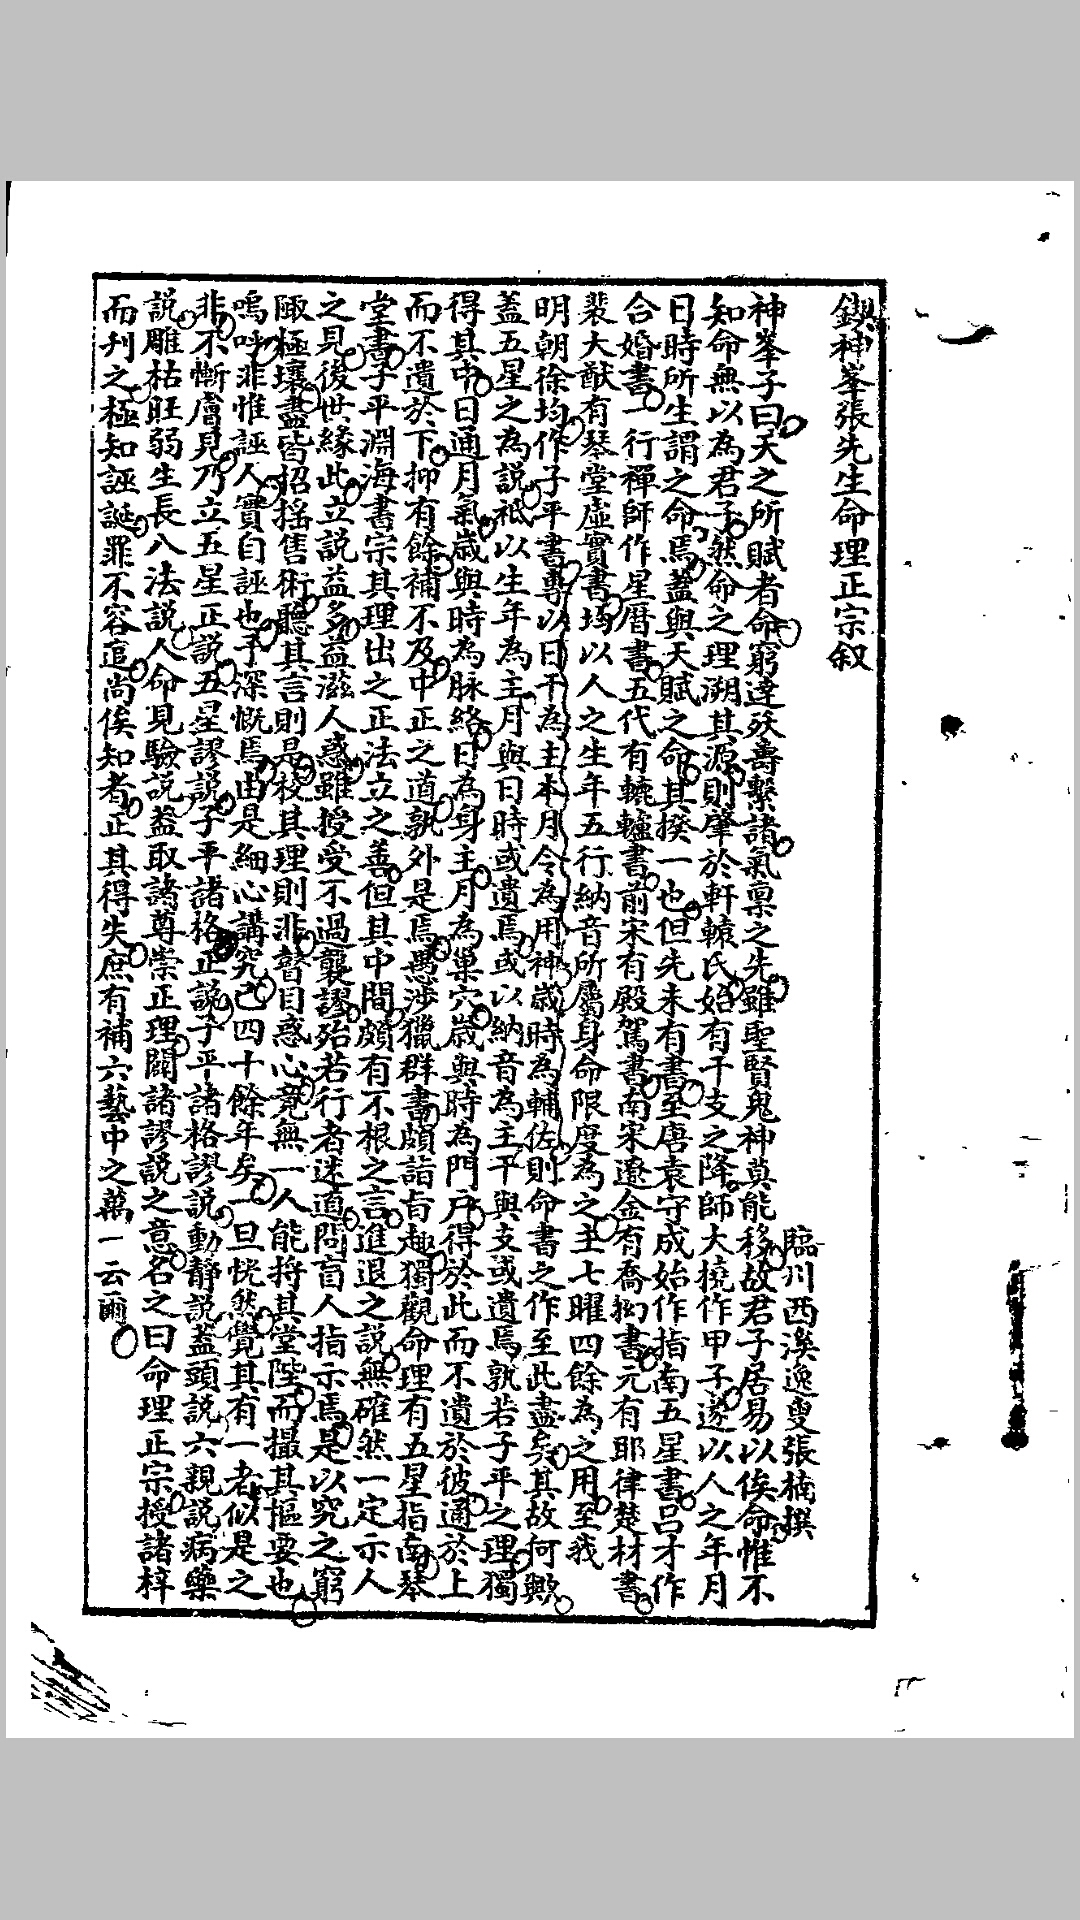 鍥神峯張先生命理正宗叙
臨川西溪逸叟張楠撰
神峯子曰天之所賦者命窮達殀壽繫諸氣禀之先雖聖賢鬼神莫能移故君子居易以俟命惟不
知命無以為君子然命之理溯其源則肇於軒轅氏始有干支之降師大撓作甲子遂以人之年月
日時所生謂之命焉蓋與天賦之命其揆一也但先未有書至唐袁守成始作指南五星書吕才作
合婚書一行禪師作星曆書五代有轆轤書前宋有殿駕書南宋遼金有喬拗書元有耶律楚材書
裴大猷有琴堂虛實書均以人之生年五行納音所屬身命限度為之主七曜四餘為之用至我
明朝徐均作子平書專以日干為主本月令為用神歲時為輔佐則命書之作至此盡矣其故何歟
蓋五星之為説祇以生年為主月與日時或遺焉或以納音為主干與支或遺焉孰若子平之理獨
得其中日通月氣歲與時為脉絡日為身主月為巢穴歲與時為門戶得於此而不遺於彼通於上
而不遺於下抑有餘補不及中正之道孰外是焉愚涉獵群書頗詣旨趣獨觀命理有五星指南琴
堂書子平淵海書宗其理出之正法立之善但其中間頗有不根之言進退之説無確然一定示人
之見後世緣此立説益多益滋人惑雖授受不過襲謬殆若行者迷道問盲人指示焉是以究之窮
陬極壤盡皆招摇售術聽其言則是校其理則非瞽目惑心竟無一人能捋其堂陛而撮其樞要也
嗚呼非惟誣人實自誣也予深慨焉由是細心講究已四十餘年矣一旦恍然覺其有一者似是之
非不慚膚見乃立五星正説五星謬説子平諸格正説子平諸格謬説動靜説蓋頭説六親説病藥
説雕枯旺弱生長八法説人命見驗説蓋取諸尊崇正理闢諸謬説之意名之曰命理正宗授諸梓
而刋之極知誣誕罪不容逭尚俟知者正其得失庶有補六藝中之萬一云爾